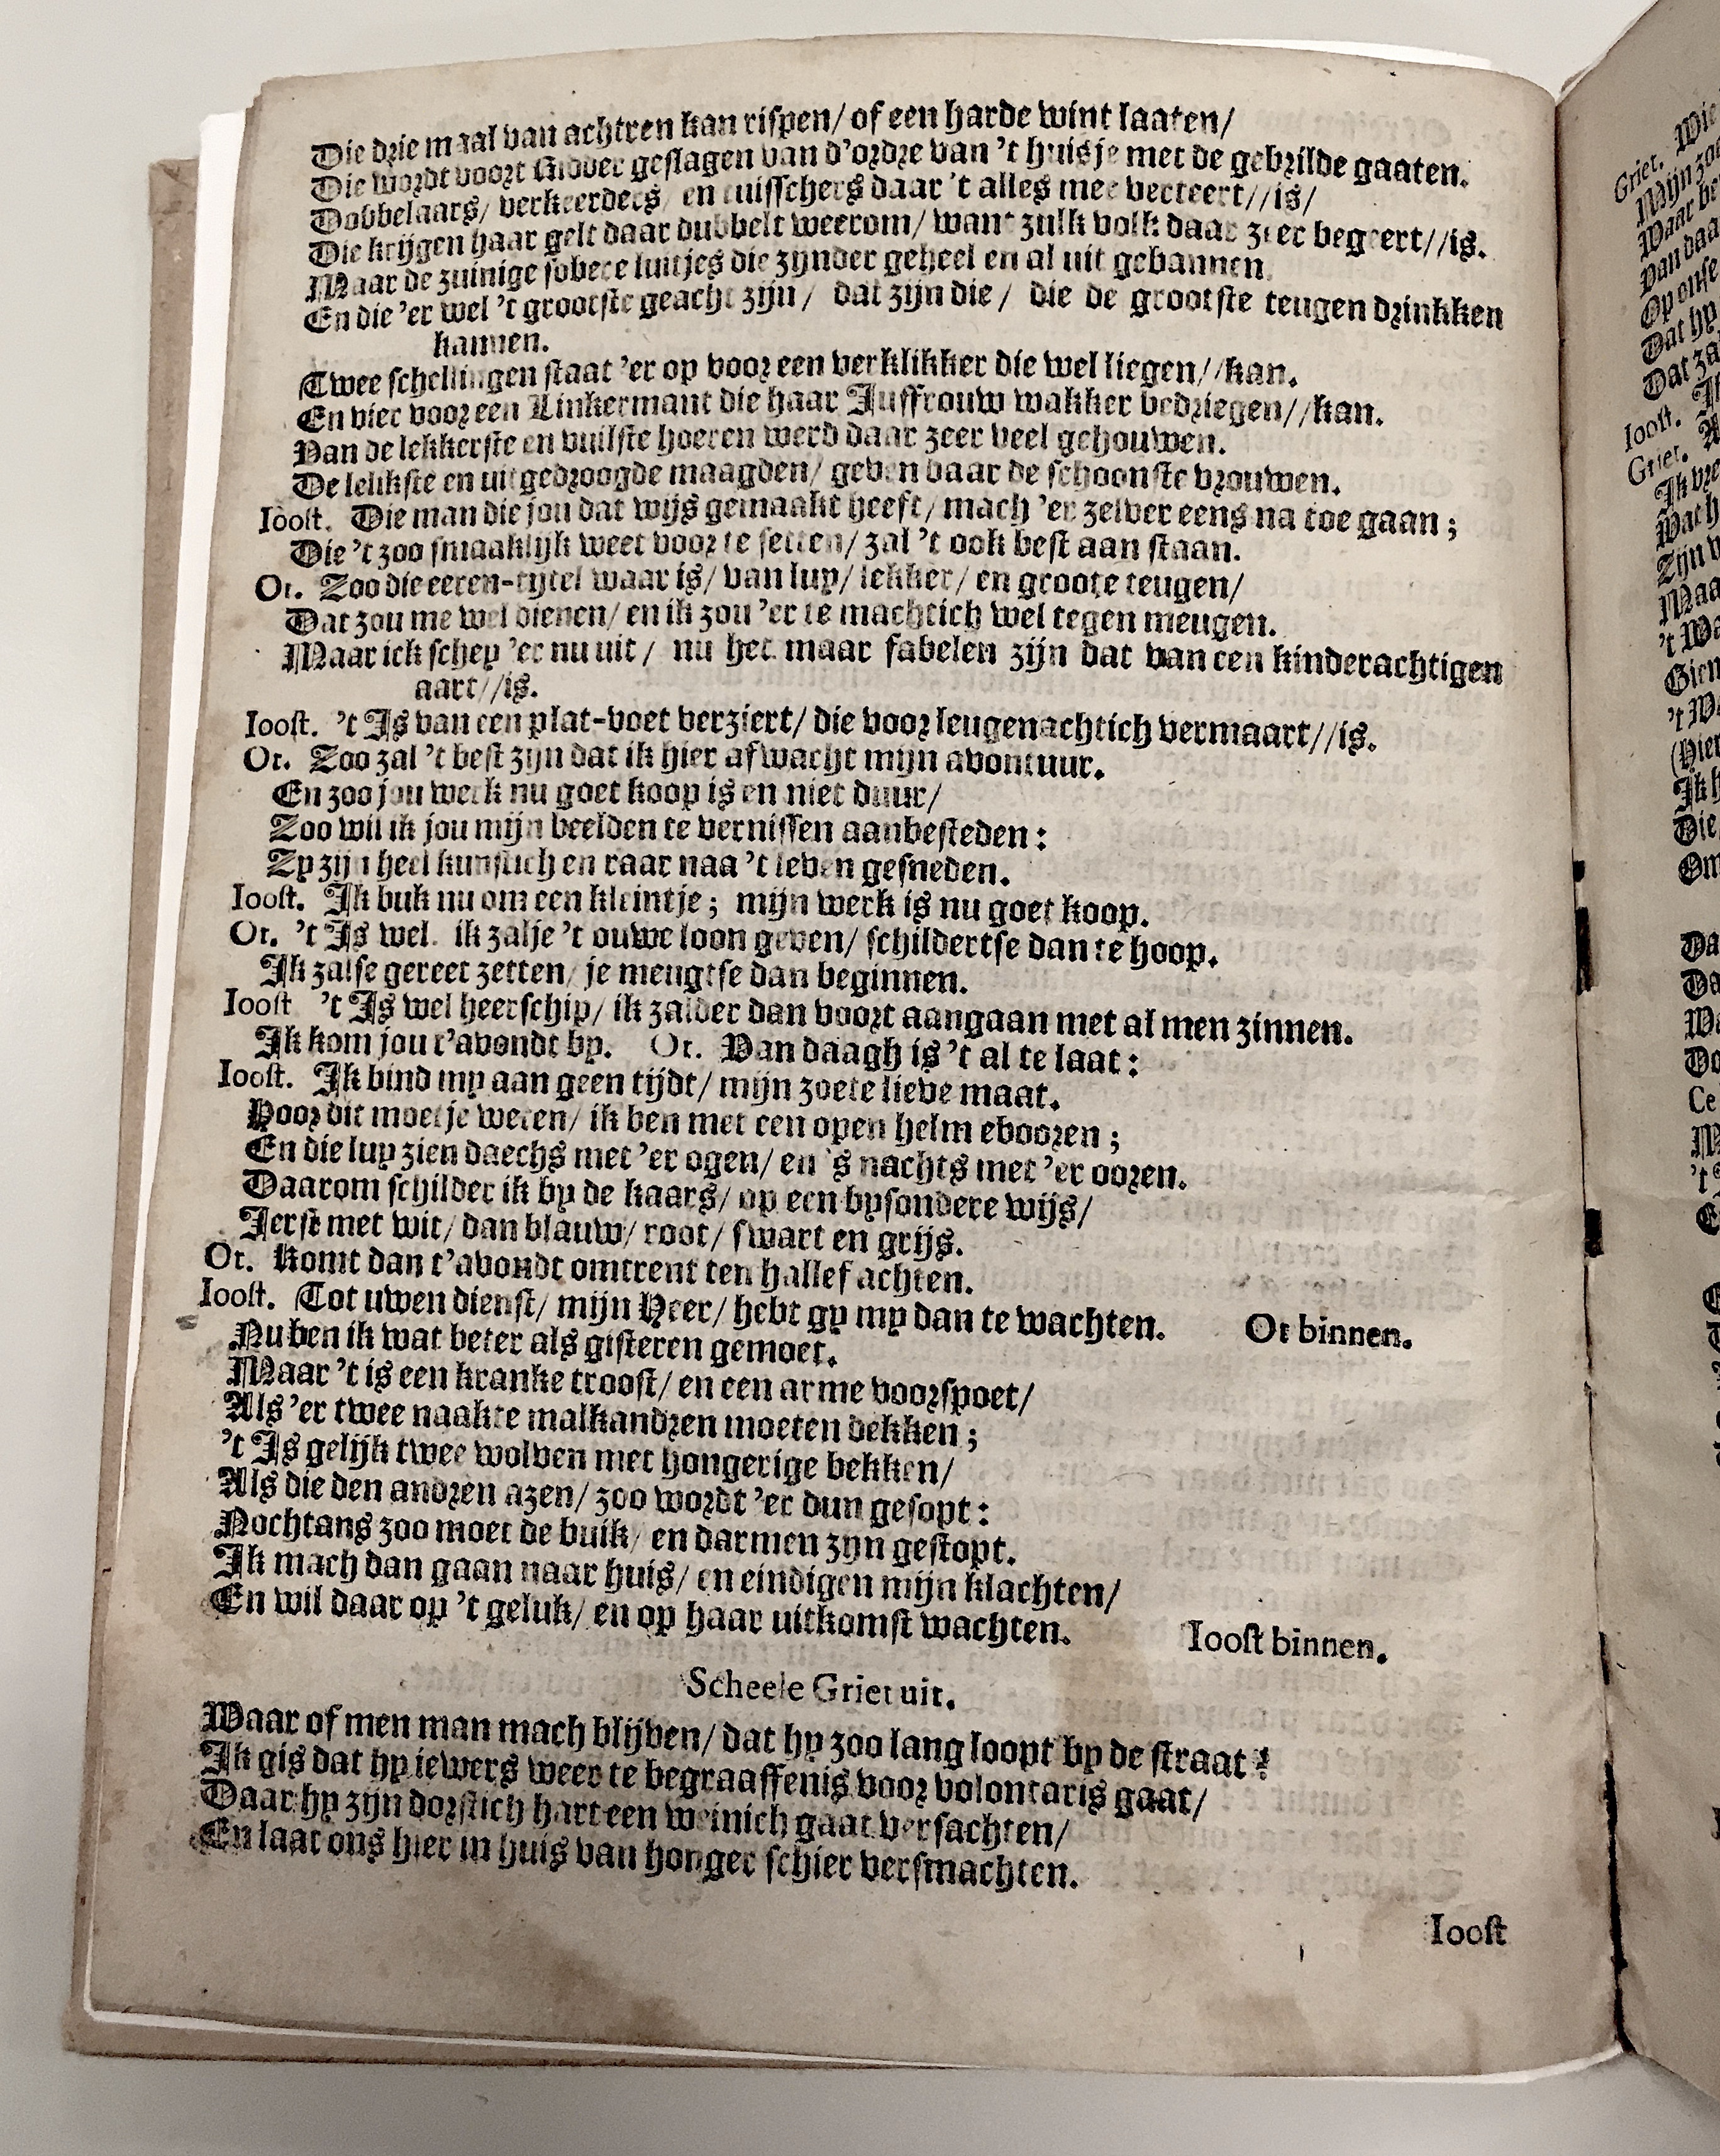 Die drie maal van achtren kan rispen/ of een harde wint laaten/
Die wordt voort Ridder geslagen van d'ordre van 't huisje met de gebrilde gaaten.
Dobbelaars/ verkeerders/ en tuisschers daar 't alles mee verteert//is/
Die krijgen haar gelt daar dubbelt weerom/ want zulk volk daar zeer begeert//is.
Maar de zuinige sobere luitjes die zijnder geheel en al uit gebannen.
En die 'er wel 't grootste geacht zijn/ dat zijn die/ die de grootste teugen drinkken
kannen.
Twee schellingen staat 'er op voor een verklikker die wel liegen//kan.
En vier voor een Linkermant die haar Juffrouw wakker bedriegen//kan.
Van de lekkerste en vuilste hoeren werd daar zeer veel gehouwen.
De lelikste en uitgedroogde maagden/ geven daar de schoonste vrouwen.
Ioost. Die man die jou dat wijs gemaakt heeft/ mach 'er zelver eens na toe gaan;
Die 't zoo smaaklijk weet voor te setten/ zal 't ook best aan staan.
Ot. Zoo die eeren-tytel waar is/ van luy/ lekker/ en groote teugen/
Dat zou me wel dienen/ en ik zou 'er te machtich wel tegen meugen.
Maar ick schey 'er nu uit/ nu het maar fabelen zijn dat van een kinderachtigen
aart//is.
Ioost. 't Is van een plat-voet verziert/ die voor leugenachtich vermaart//is.
Ot. Zoo zal 't best zyn dat ik hier afwacht mijn avontuur.
En zoo jou werk nu goet koop is en niet duur/
Zoo wil ik jou mijn beelden te vernissen aanbesteden:
Zy zijn heel kunstich en raar naa 't leven gesneden.
Ioost. Ik buk nu om een kleintje; mijn werk is nu goet koop.
Ot. 't Is wel. ik zalje 't ouwe loon geven/ schildertse dan te hoop.
Ik zalse gereet zetten/ je meugtse dan beginnen.
Ioost 't Is wel heerschip/ ik zalder dan voort aangaan met al men zinnen.
Ik kom jou t'avondt by. Ot. Van daagh is 't al te laat:
Ioost. Ik bind my aan geen tijdt/ mijn zoete lieve maat.
Voor dit moetje weten/ ik ben met een open helm ebooren;
En die luy zien daechs met 'er ogen/ en 's nachts met 'er ooren.
Daarom schilder ik by de kaars/ op een bysondere wijs/
Ierst met wit/ dan blauw/ root/ swart en grijs.
Ot. Komt dan t'avondt omtrent ten hallef achten.
Ioost. Tot uwen dienst/ mijn Heer/ hebt gy my dan te wachten. Ot binnen.
Nu ben ik wat beter als gisteren gemoet.
Maar 't is een kranke troost/ en een arme voorspoet/
Als 'er twee naakte malkandren moeten dekken;
't Is gelijk twee wolven met hongerige bekken/
Als die den andren azen/ zoo wordt 'er dun gesopt:
Nochtans zoo moet de buik/ en darmen zyn gestopt.
Ik mach dan gaan naar huis/ en eindigen mijn klachten/
En wil daar op 't geluk/ en op haar uitkomst wachten. Ioost binnen.
Scheele Griet uit.
Waar of men man mach blijven/ dat hy zoo lang loopt by de straat?
Ik gis dat hy iewers weer te begraaffenis voor volontaris gaat/
Daar hy zijn dorstich hart een weinich gaat versachten/
En laat ons hier in huis van honger schier versmachten.
Ioost